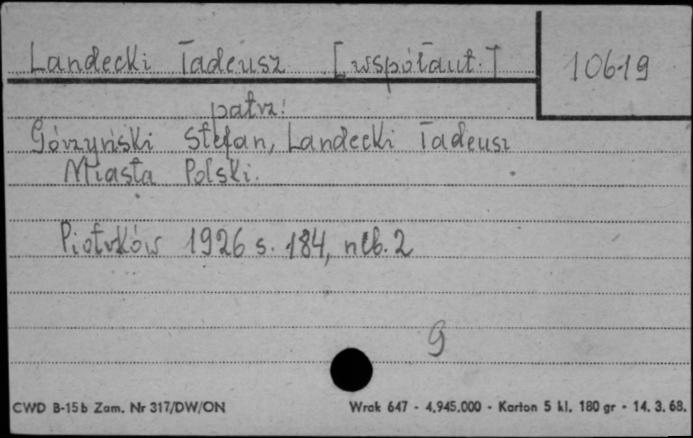 Landecki Tadeusz [współaut.]
10619
patrz:
Górzyński Stefan, Landecki Tadeusz
Miasta Polski.
Piotrków 1926 s. 184, nlb. 2
9
CWD B-15b Zam. Nr 317/DW/ON
Wrak 647 - 4.945.000 - Karton 5 kl. 180 gr - 14. 3. 68.